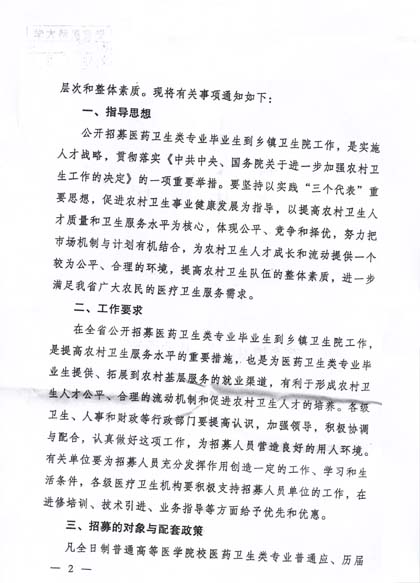 层次和整体素质。现将有关事项通知如下：
一、指导思想
公开招募医药卫生类专业毕业生到乡镇卫生院工作，是实施
人才战略，贯彻落实《中共中央、国务院关于进一步加强农村卫
生工作的决定》的一项重要举措。要坚持以实践“三个代表”重
要思想，促进农村卫生事业健康发展为指导，以提高农村卫生人
才质量和卫生服务水平为核心，体现公平、竞争和择优，努力把
市场机制与计划有机结合，为农村卫生人才成长和流动提供一个
较为公平、合理的环境，提高农村卫生队伍的整体素质，进一步
满足我省广大农民的医疗卫生服务需求。
二、工作要求
在全省公开招募医药卫生类专业毕业生到乡镇卫生院工作，
是提高农村卫生服务水平的重要措施，也是为医药卫生类专业毕
业生提供、拓展到农村基层服务的就业渠道，有利于形成农村卫
生人才公平、合理的流动机制和促进农村卫生人才的培养。各级
卫生、人事和财政等行政部门要提高认识，加强领导，积极协调
与配合，认真做好这项工作，为招募人员营造良好的用人环境。
有关单位要为招募人员充分发挥作用创造一定的工作、学习和生
活条件，各级医疗卫生机构要积极支持招募人员单位的工作，在
进修培训、技术引进、业务指导等方面给予优先和优惠。
三、招募的对象与配套政策
凡全日制普通高等医学院校医药卫生类专业普通应、历届
— 2 —